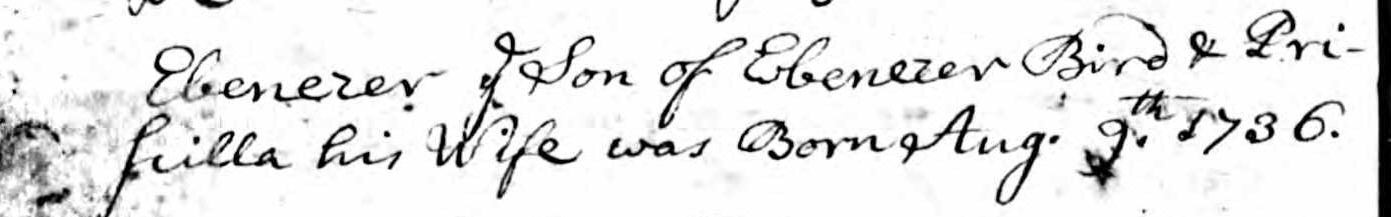 Ebenezer yᵉ Son of Ebenezer Bird & Pri-
scilla his Wife was Born Aug. 9.th 1736.